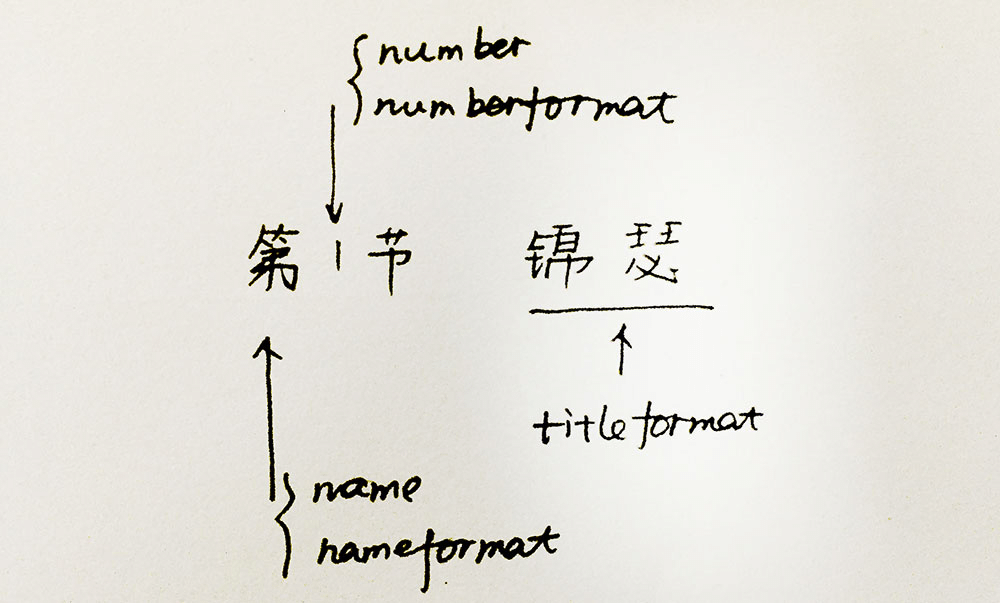 number
numberformat
第1节 锦瑟
titleformat
name
nameformat